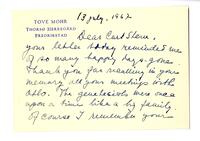 TOVE MOHR
THORSØ HERREGÅRD
FREDRIKSTAD
13 July, 1962
Dear Curt Stern,
your letter today reminded me
of so many happy days gone.
Thank you for reading in your
memory all your meetings with
Otto. The geneticists were once
upon a time like a big family.
Of course I remember your